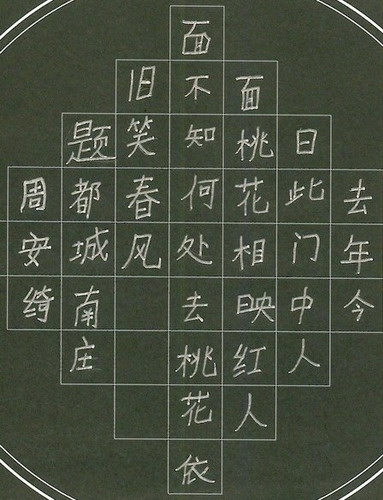 去年今
日此门中人
面桃花相映红人
面不知何处去桃花依
旧笑春风
题都城南庄
周安绮